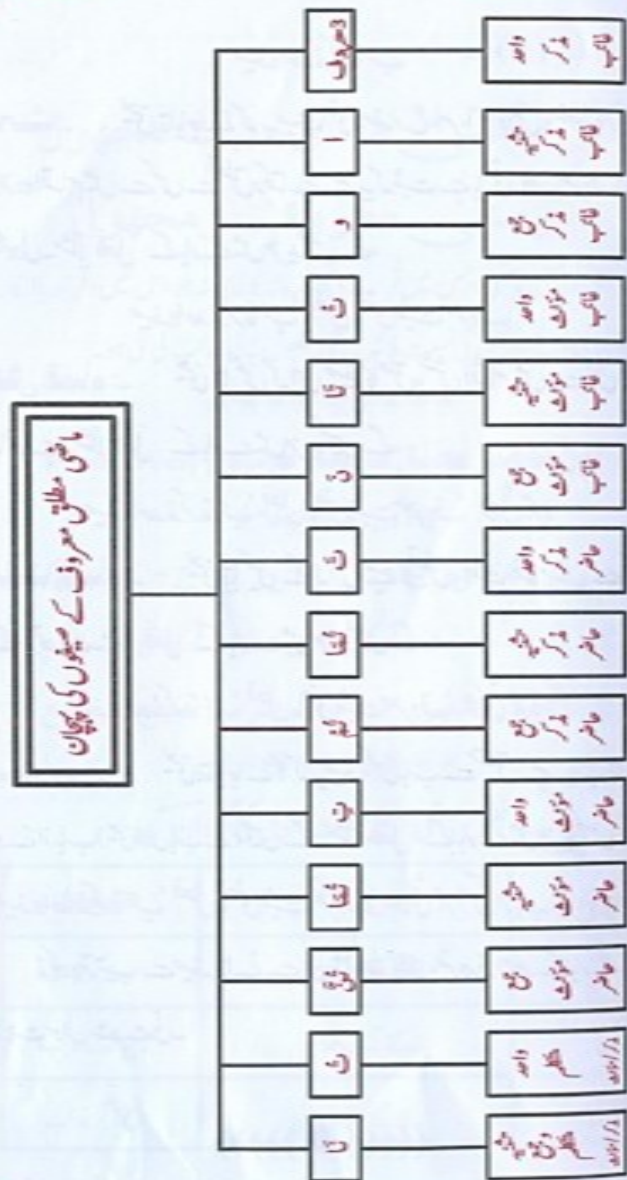 ماضی مطلق معروف کے صیغوں کی پہچان
3 حروف
ا
و
تْ
تَا
نَ
تَ
تُمَا
تُمْ
تِ
تُمَا
تُنَّ
تُ
نَا
واحد مذکر غائب
تثنیہ مذکر غائب
جمع مذکر غائب
واحد مؤنث غائب
تثنیہ مؤنث غائب
جمع مؤنث غائب
واحد مذکر حاضر
تثنیہ مذکر حاضر
جمع مذکر حاضر
واحد مؤنث حاضر
تثنیہ مؤنث حاضر
جمع مؤنث حاضر
واحد متکلم مذکر/مؤنث
تثنیہ وجمع متکلم مذکر/مؤنث